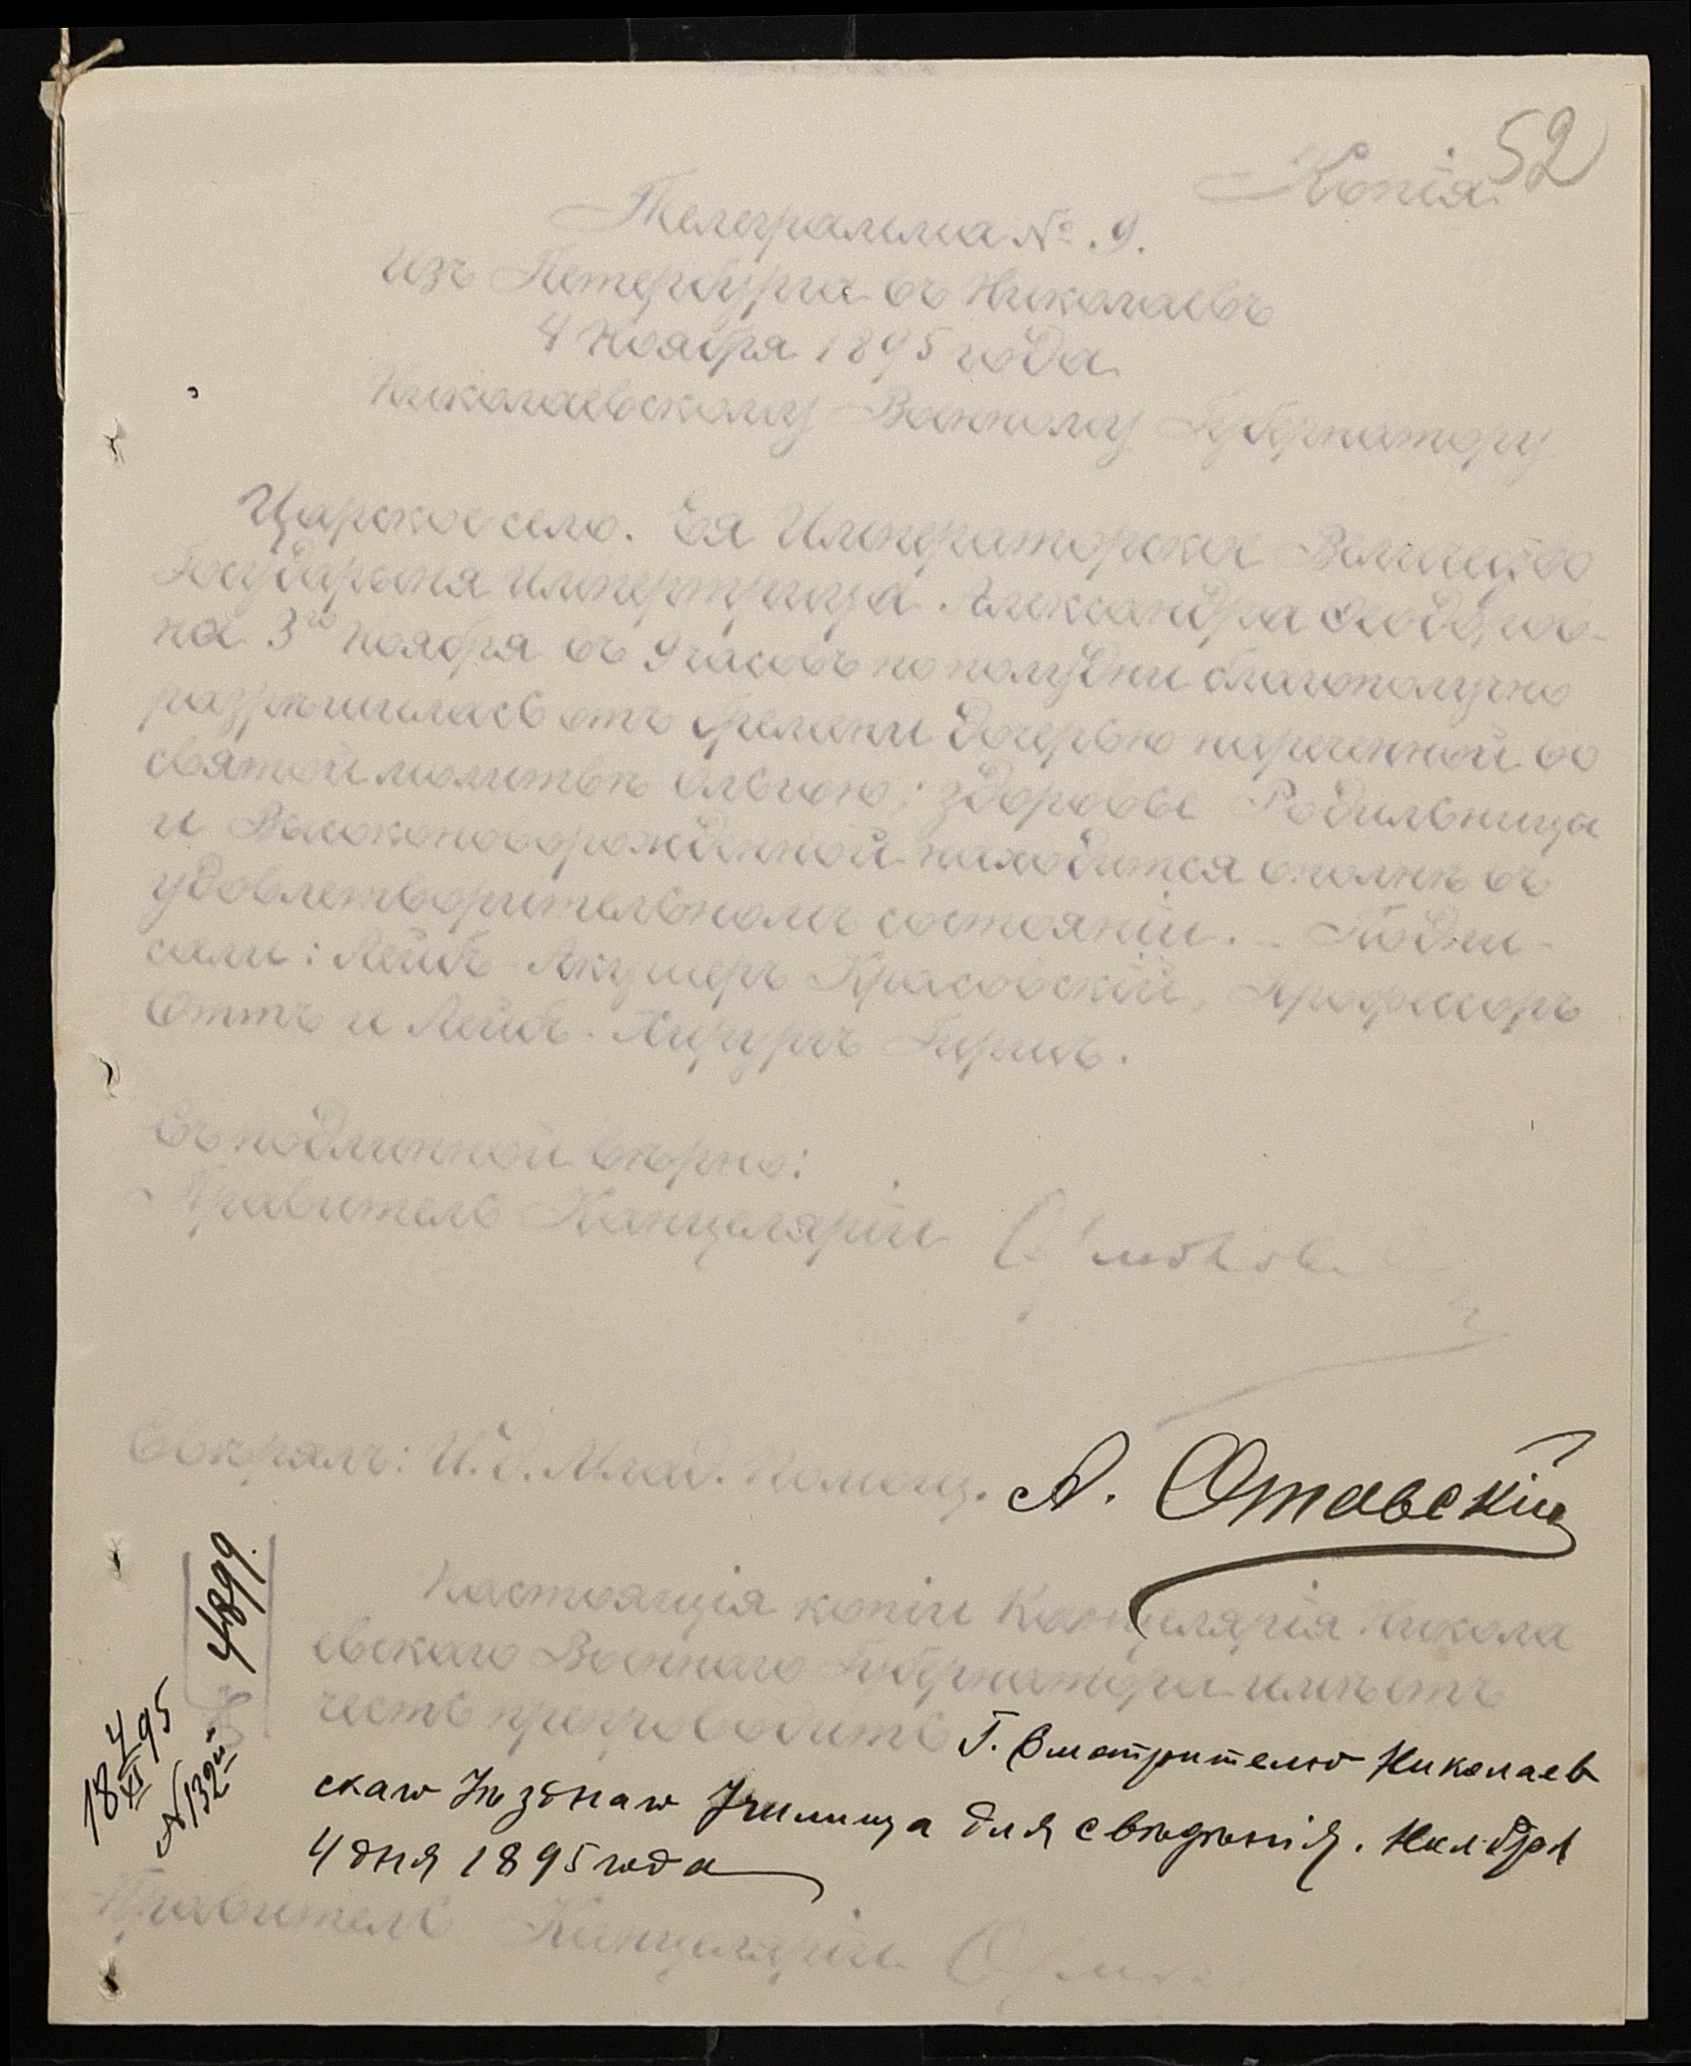 52
Копія.
Телеграмма № 9.
Изъ Петербурга въ Николаевъ
4 Ноября 1895 года.
Николаевскому Военному Губернатору
Царское село. Ея Императорское Величество
Государыня Императрица Александра Ѳеодоров-
на 3го Ноября въ 9 часовъ по полудни благополучно
разрѣшилась отъ бремени дочерью нареченной во
святой молитвѣ Ольгою; здоровье Родильницы
и Высоконоворожденной находится вполнѣ въ
удовлетворительномъ состояніи. – Подпи-
сали: Лейбъ-Акушеръ Красовскій, Профессоръ
Оттъ и Лейбъ-Хирургъ Гиршъ.
Съ подлинной вѣрно:
Правитель Канцеляріи
Свѣрялъ: И. д. Млад. Помощ. А. Отавскій
Настоящія копіи Канцелярія Никола
евскаго Военнаго Губернатора имѣетъ
честь препроводить Г. Смотрителю Николаев
скаго Уѣзднаго Училища для свѣдѣнія. Ноября
4 дня 1895 года
Правитель Канцеляріи
4899.
18 4/XI 95
№ 132й